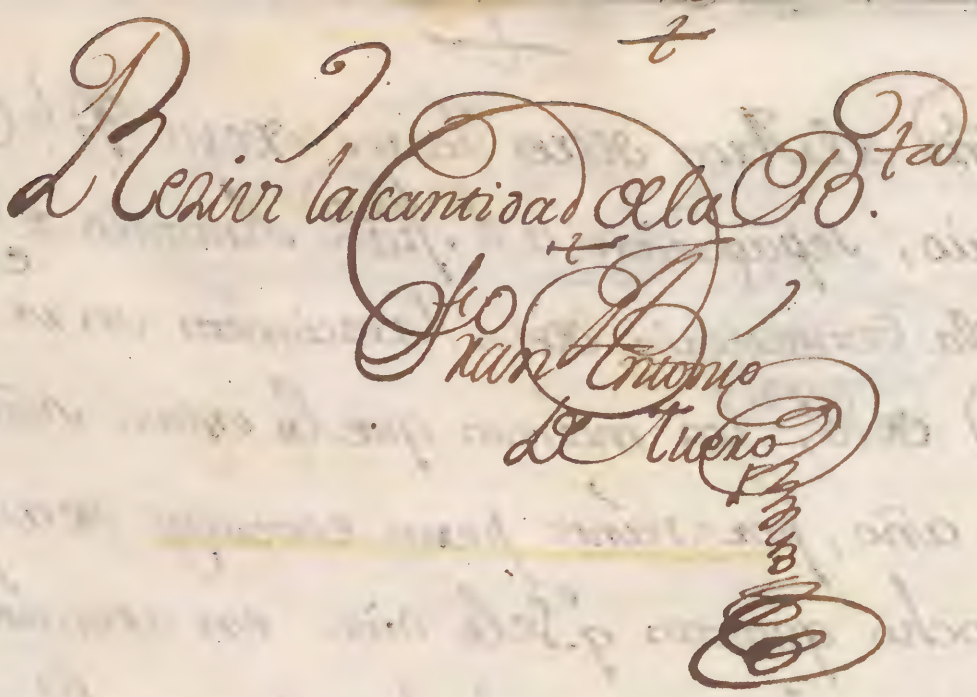 Rezivi la cantidad de la B.ta
Franco Antonio
de Tuero